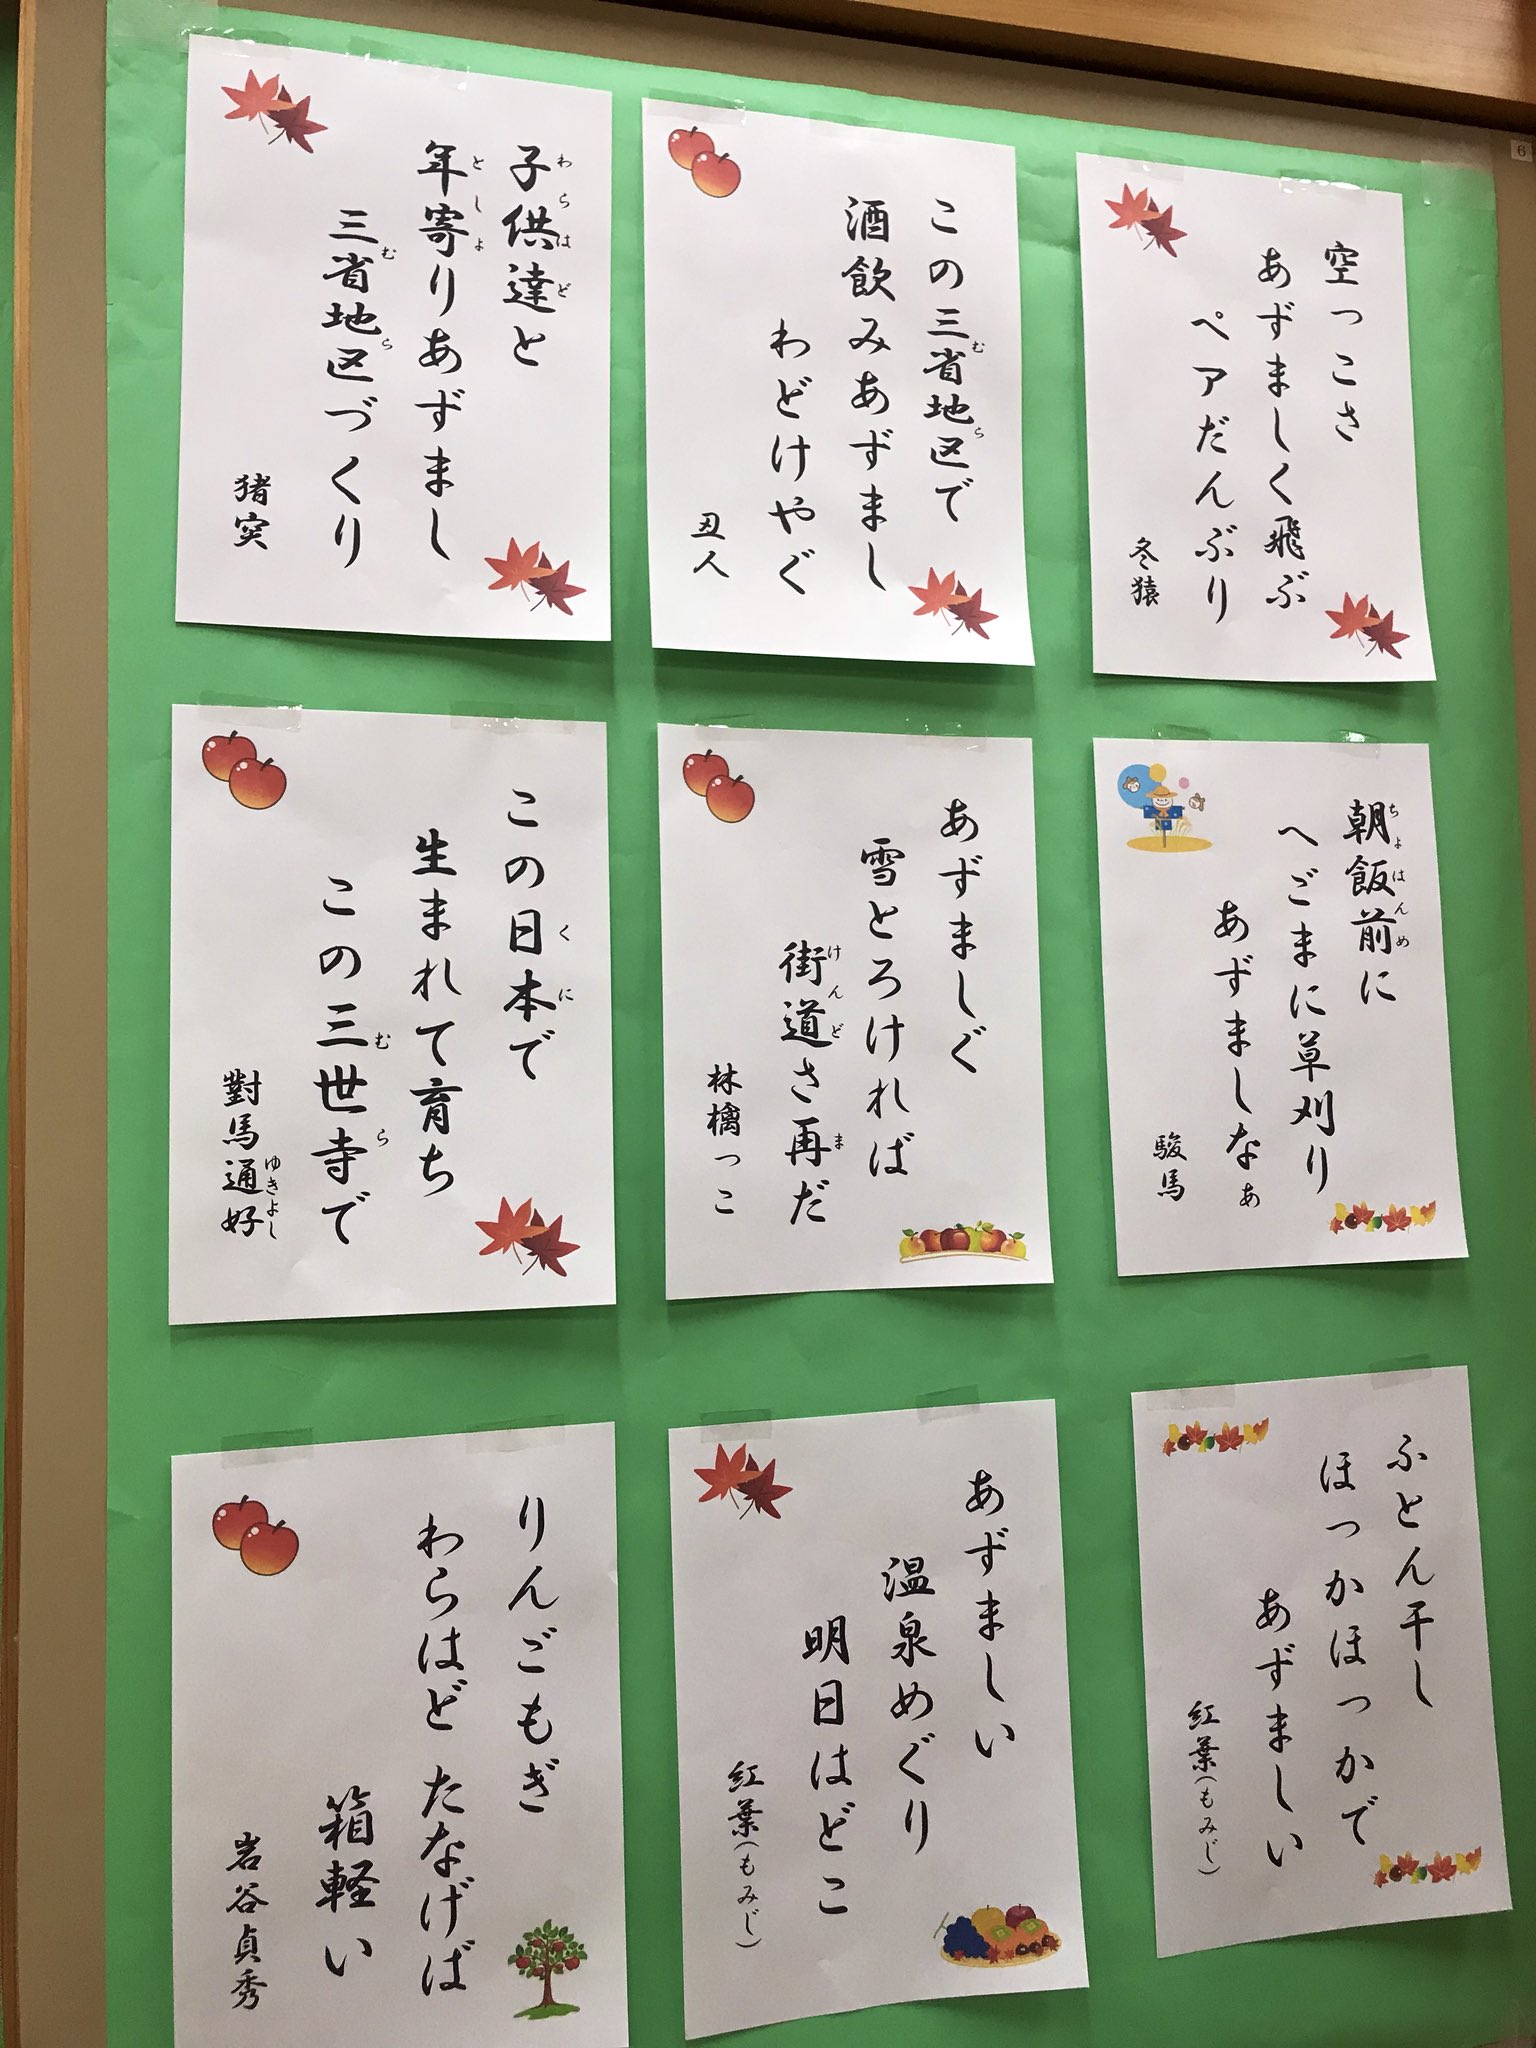 空っこさ
あずましく飛ぶ
ペアだんぶり
冬猿
この三省地区で
む
ら
酒飲みあずまし
わどけやぐ
丑人
子供達と
わらはど
年寄りあずまし
としょ
三省地区づくり
む
ら
猪突
朝飯前に
ちょはんめ
へごまに草刈り
あずましなぁ
駿馬
あずましぐ
雪とろけれb
街道さ再だ
けんど
ま
林檎っこ
この日本で
くに
生まれて育ち
この三世寺で
む
ら
對馬通好
ゆきよし
ふとん干し
ほっかほっかで
あずましい
紅葉(もみじ)
あずましい
温泉めぐり
明日はどこ
紅葉(もみじ)
りんごもぎ
わらはど たなげば
箱軽い
岩谷貞秀
6